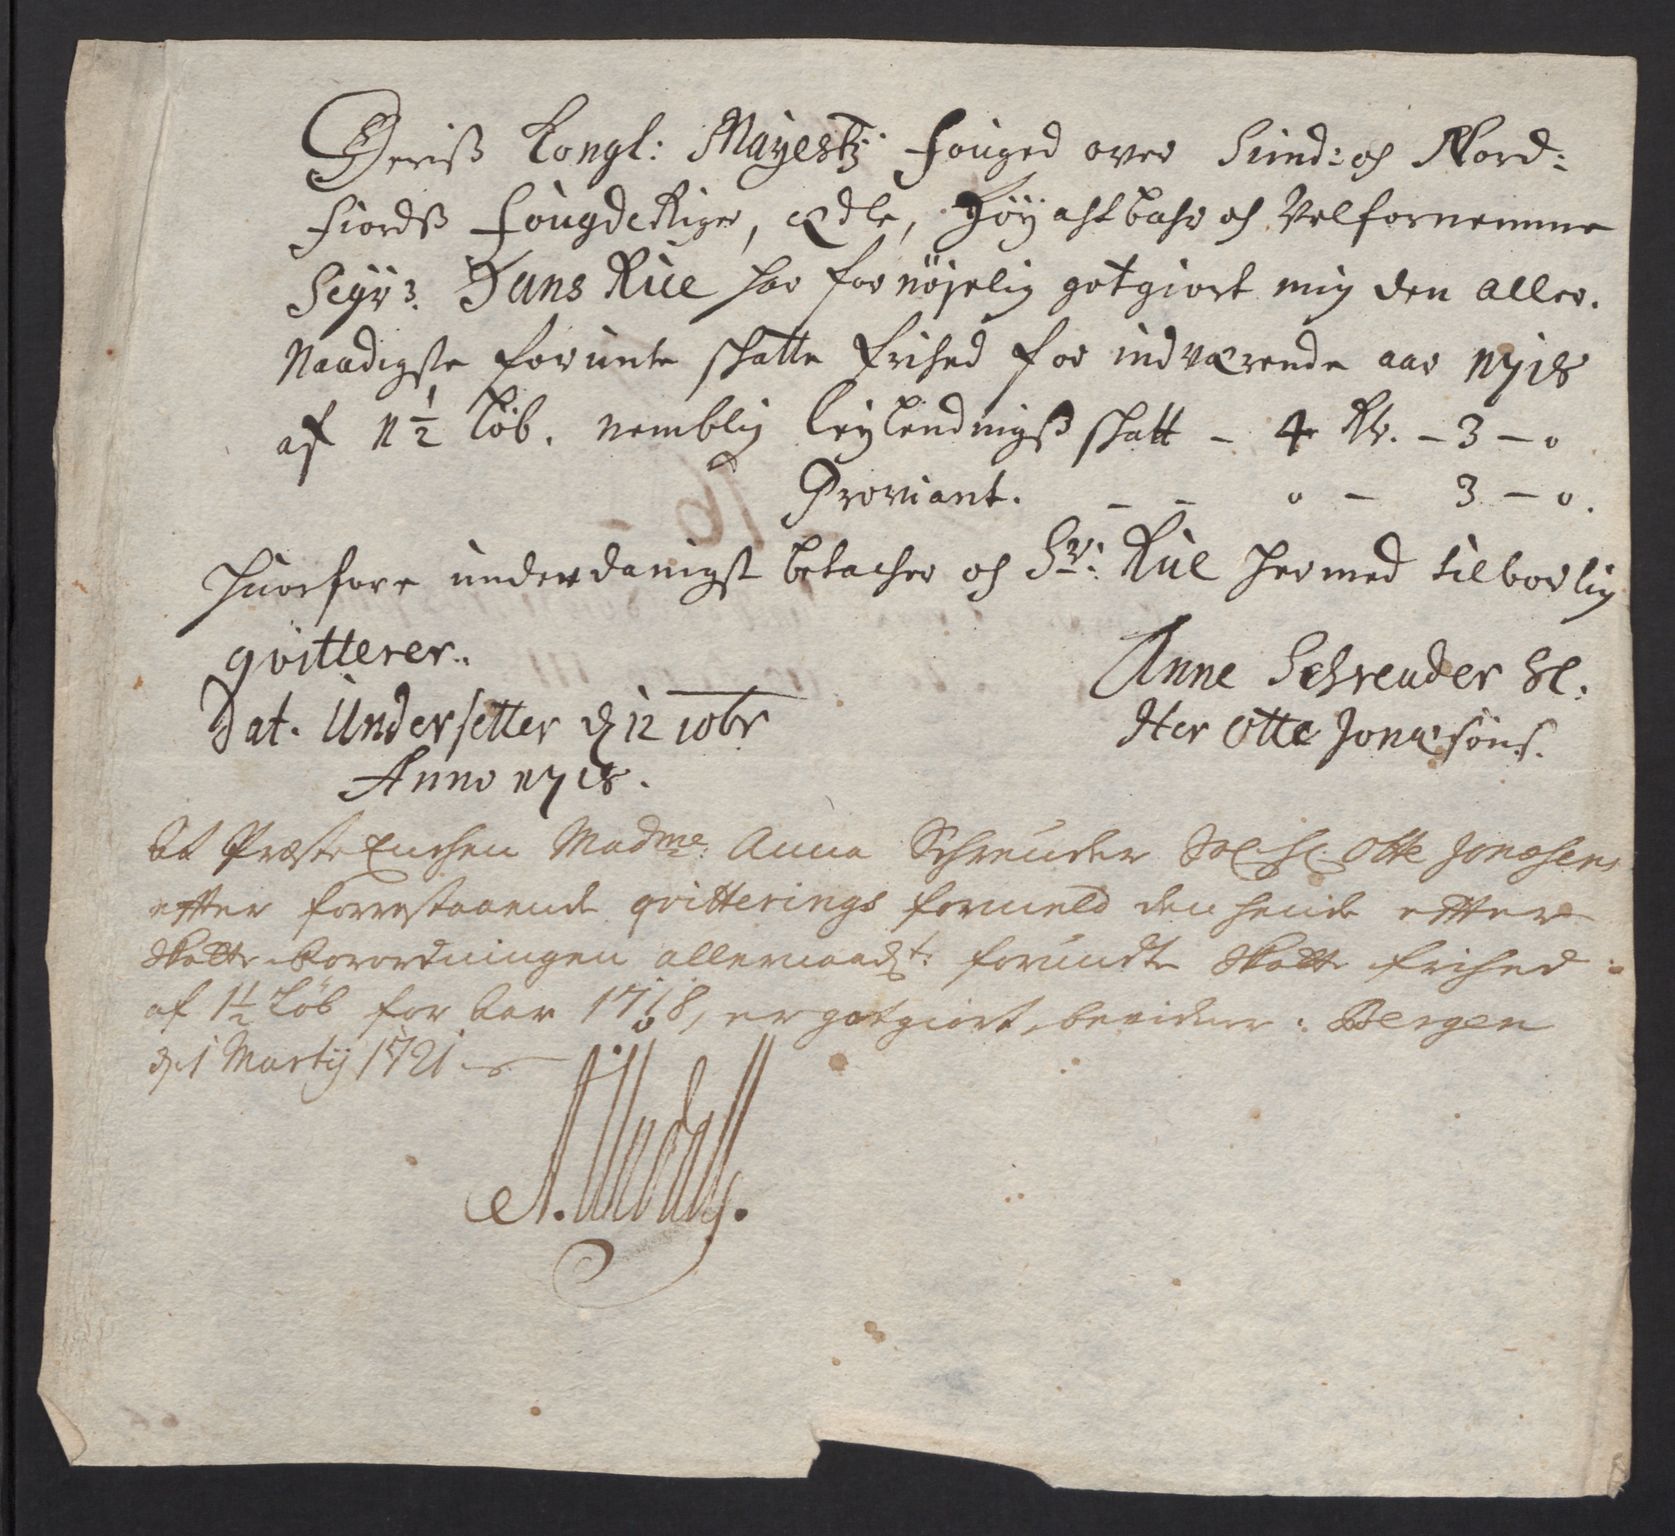 Deriß Kongl: Mayestz Fouged over Sund: och Nord:
Fiordß Fougderiger, Edle, Høy acht bahr och Velfornemme
Seyr. Hans Rue har fornøyelig gotgiort mig den aller.
Naadigste forunte skatte frihed for indværende aar 1718
af 1½ Løb. nemblig Leylendingß skatt – 4 Rd. – 3 – 0
Proviant. – – 0 – 3 – 0.
Huorfore underdanigst betacher och Sr: Rue hermed tilborlig
qvitterer..
Anne Schreuder Sl.
Her Otte Jonæsøns.
Dat. Undersetter d 12 10br
Anno 1718.
At Præste Enchen Madme: Anna Schreuder Sal. Hr. Otte Jonæsens
efter forrestaaende qvitterings formeld den hende efter
Skatte-Forordningen allernaadste forundte Skatte frihed
af 1½ Løb for Aar 1718, er gotgiort, bevidner: Bergen
d. 1 Marty 1721